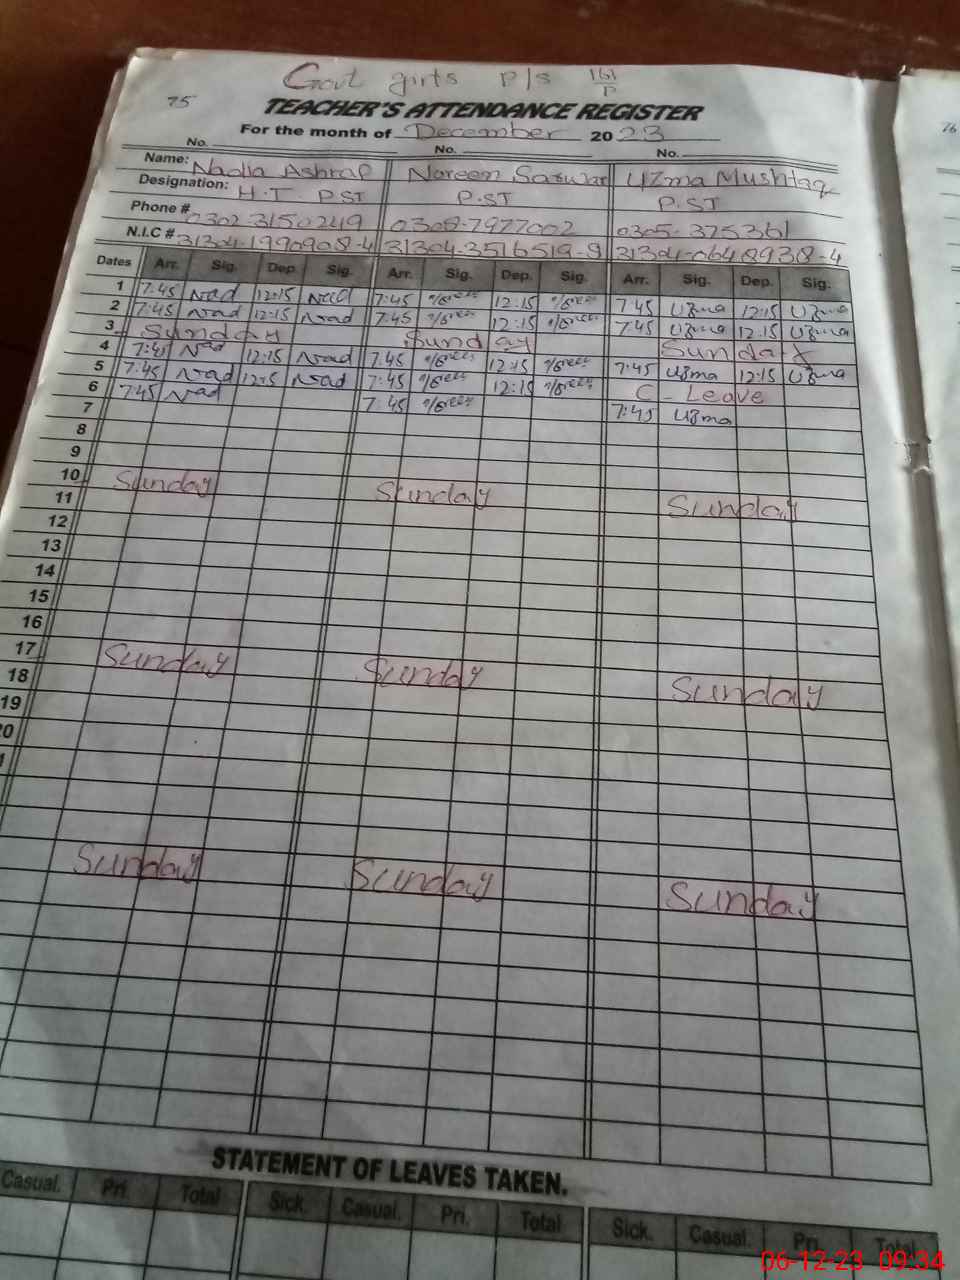 Govt girls p/s 161/P
75
TEACHER'S ATTENDANCE REGISTER
For the month of December 2023
No. No. No.
Name: Nadia Ashraf Noreen Sarwar Uzma Mushtaq
Designation: H.T. PST P.ST P.ST
Phone # 0302-3150249 0308-7977002 0305-375361
N.I.C # 31304-1990908-4 31304-3516519-9 31304-0648938-4
Dates Arr. Sig. Dep. Sig. Arr. Sig. Dep. Sig. Arr. Sig. Dep. Sig.
1 7:45 Nad 12:15 Nad 7:45 12:15 7:45 Uzma 12:15 Uzma
2 7:45 Nad 12:15 Nad 7:45 12:15 7:45 Uzma 12:15 Uzma
3 Sunday Sunday Sunday
4 7:45 Nad 12:15 Nad 7:45 12:15 7:45 Uzma 12:15 Uzma
5 7:45 Nad 12:15 Nad 7:45 12:15 C-Leave
6 7:45 Nad 7:45 7:45 Uzma
7
8
9
10 Sunday Sunday Sunday
11
12
13
14
15
16
17 Sunday Sunday Sunday
18
19
Sunday Sunday Sunday
STATEMENT OF LEAVES TAKEN.
Casual. Pri. Total Sick. Casual. Pri. Total Sick. Casual. Pri. Total
06-12-23 09:34